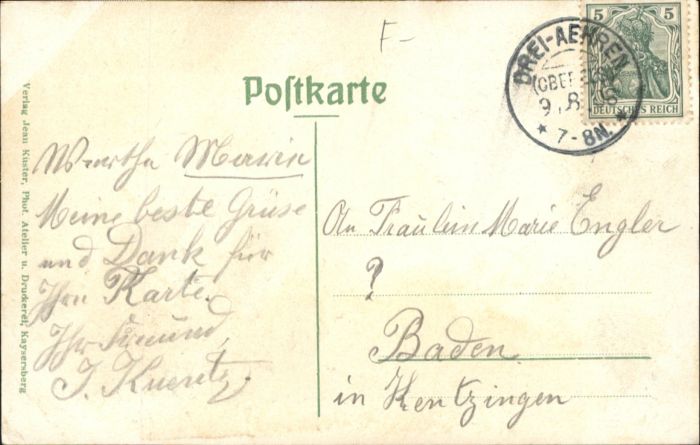 F-
5 5
DEUTSCHES REICH
DREI-AEHREN
9. 8.
* 7-8N. *
Postkarte
Verlag Jean Kuster, Phot. Atelier u. Druckerei, Kaysersberg
Meine beste Grüse
und Dank für
Ihre Karte.
Ihr Freund,
An Fräulein Marie Engler
?
Baden
in Kentzingen